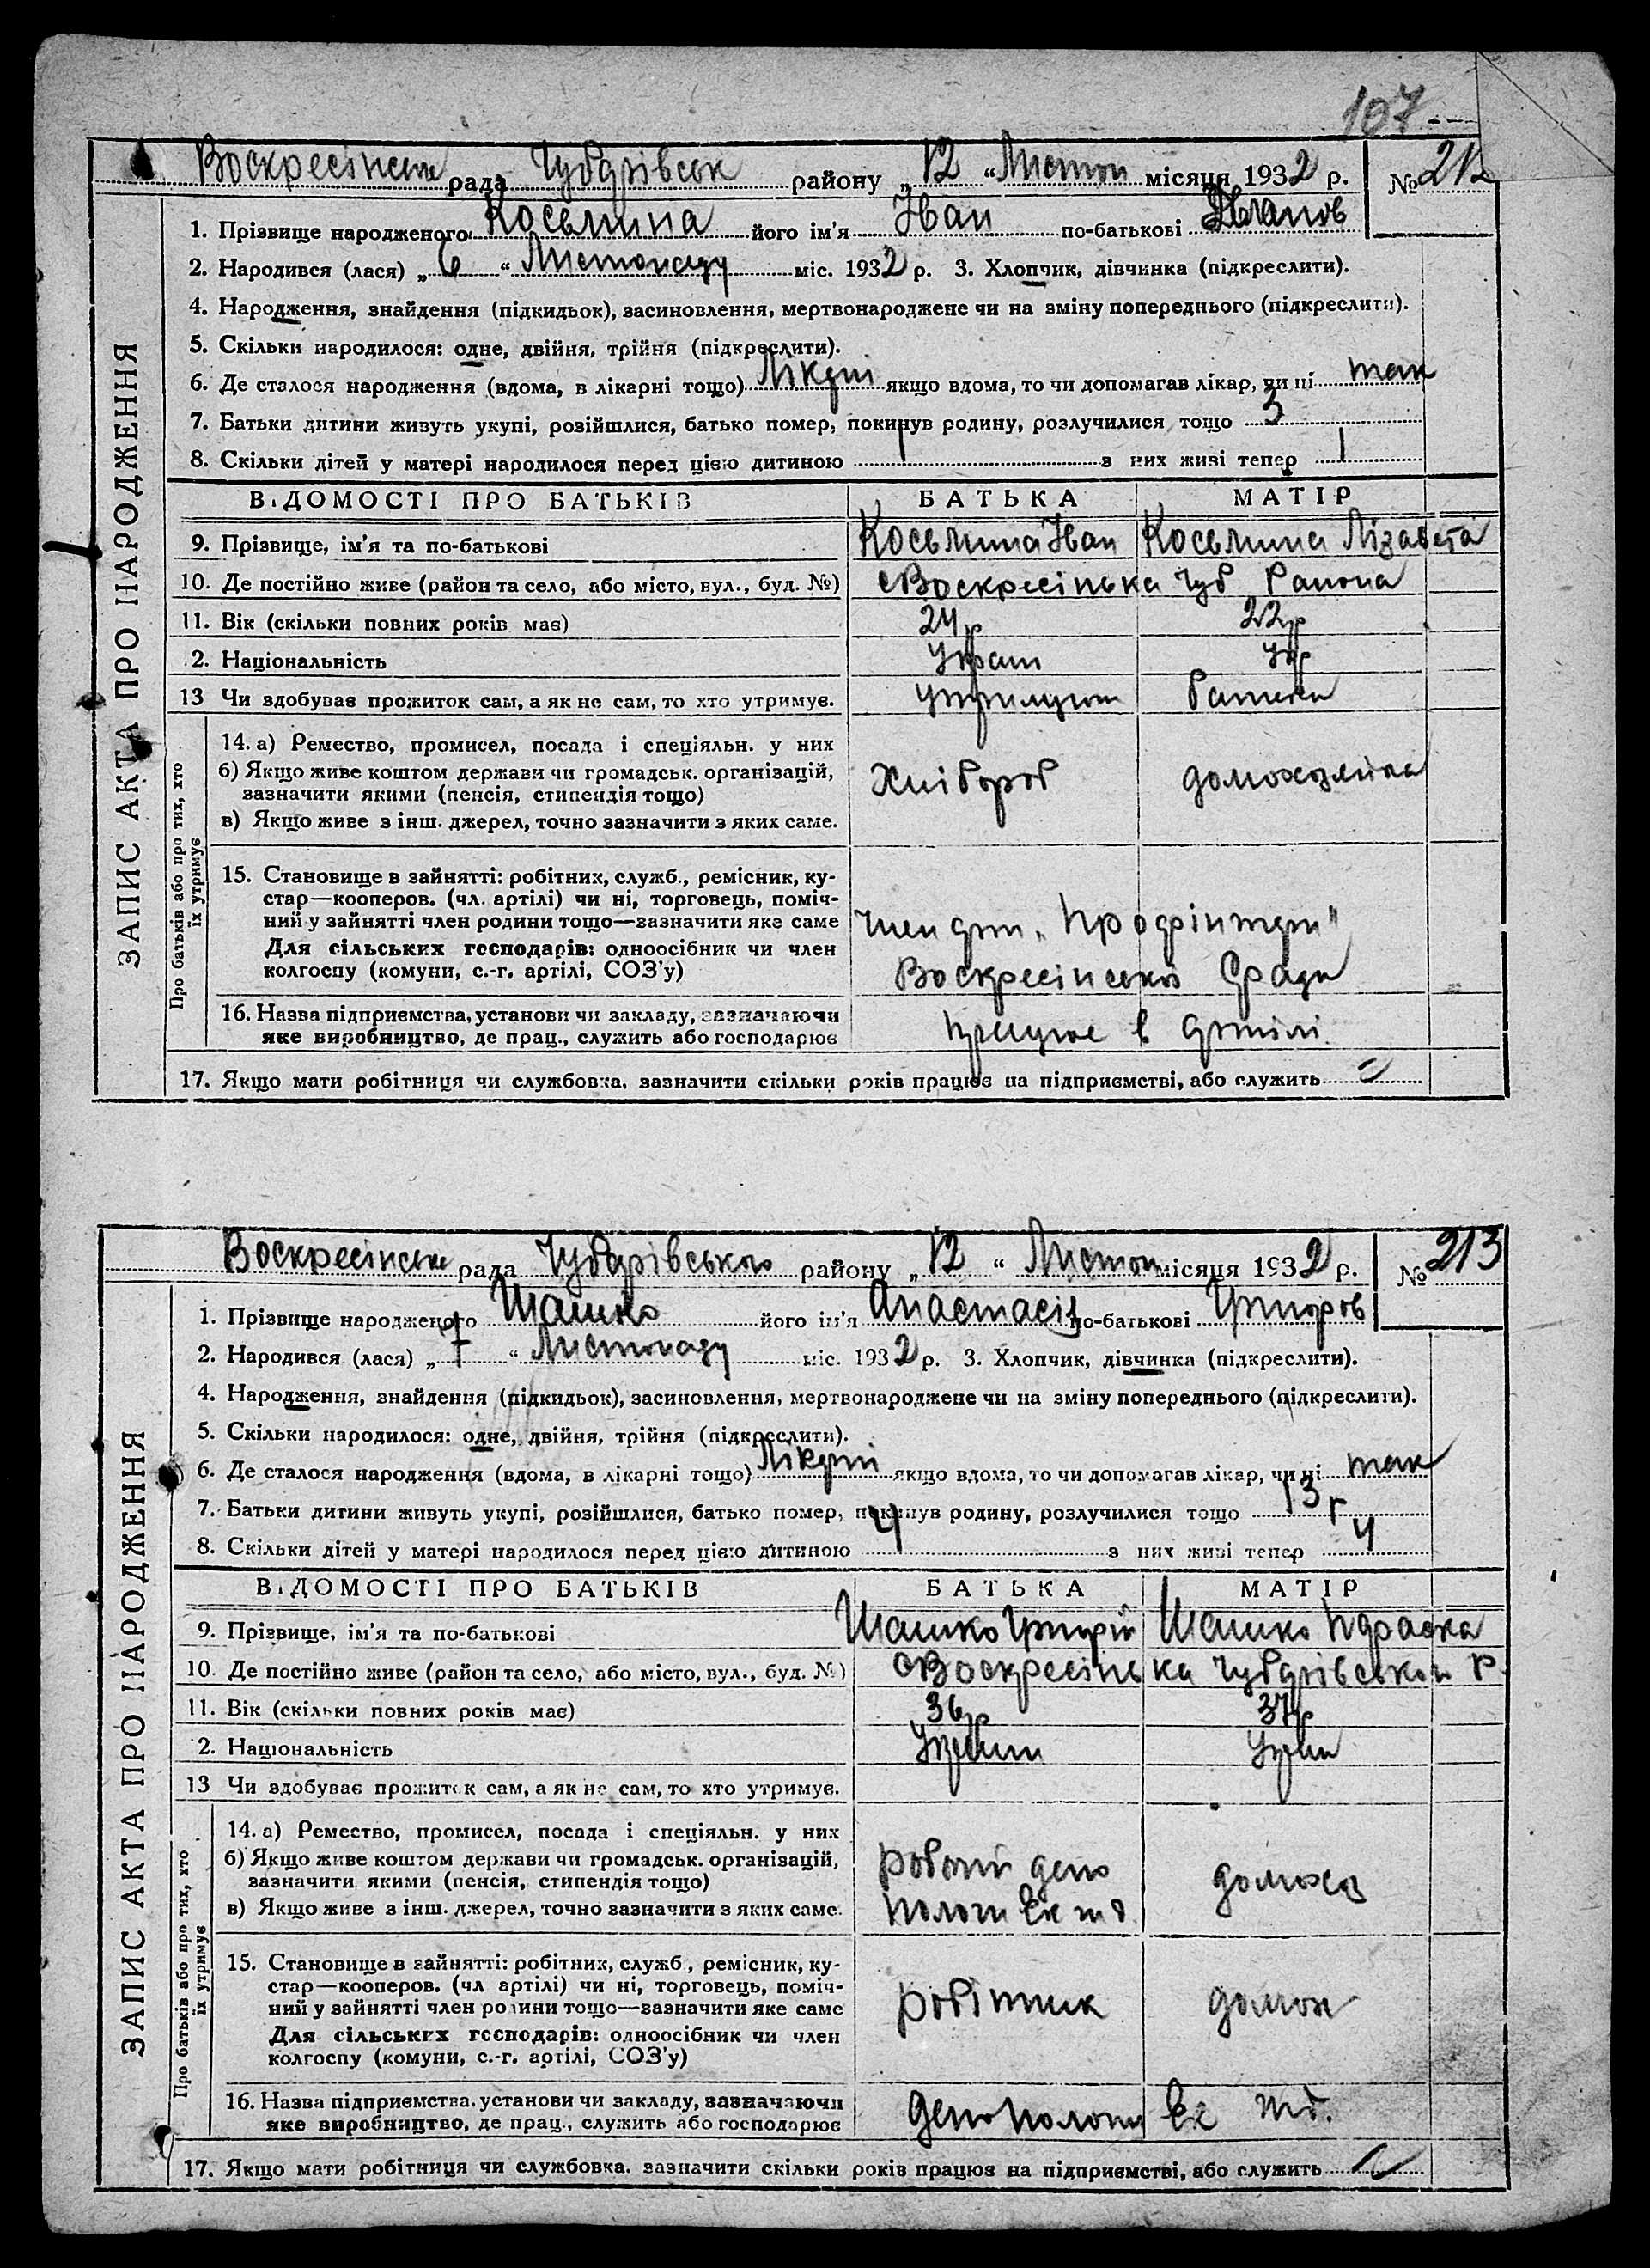 107
Воскресінська рада Чубарівськ району „12“ Листоп місяця 1932 р. № 212
1. Прізвище народженого Косьмина його ім'я Іван по-батькові Іванов
2. Народився (лася) „6“ Листопаду міс. 1932 р. 3. Хлопчик, дівчинка (підкреслити).
4. Народження, знайдення (підкидьок), засиновлення, мертвонароджене чи на зміну попереднього (підкреслити).
5. Скільки народилося: одне, двійня, трійня (підкреслити).
6. Де сталося народження (вдома, в лікарні тощо) Лікарні якщо вдома, то чи допомагав лікар, чи ні так
7. Батьки дитини живуть укупі, розійшлися, батько помер, покинув родину, розлучилися тощо 3
8. Скільки дітей у матері народилося перед цією дитиною 1 з них живі тепер 1
ЗАПИС АКТА ПРО НАРОДЖЕННЯ
ВІДОМОСТІ ПРО БАТЬКІВ БАТЬКА МАТІР
9. Прізвище, ім'я та по-батькові Косьмина Іван Косьмина Лізавета
10. Де постійно живе (район та село, або місто, вул., буд. №) с Воскресінька Чуб Района
11. Вік (скільки повних років має) 24 р 22 р
2. Національність Украт Укр
13 Чи здобуває прожиток сам, а як не сам, то хто утримує.
Про батьків або про тих, хто їх утримує
14. а) Ремество, промисел, посада і спеціяльн. у них
б) Якщо живе коштом держави чи громадськ. організацій,
зазначити якими (пенсія, стипендія тощо)
Хлібороб домохазяйка
в) Якщо живе з інш. джерел, точно зазначити з яких саме.
15. Становище в зайнятті: робітник, служб., ремісник, ку-
стар—кооперов. (чл. артілі) чи ні, торговець, поміч-
ний у зайнятті член родини тощо—зазначити яке саме
Член арт „Профінтерн“
Для сільських господарів: одноосібник чи член
колгоспу (комуни, с.-г. артілі, СОЗ'у)
Воскресінської Сради
16. Назва підприємства, установи чи закладу, зазначаючи
яке виробництво, де прац., служить або господарює
працює в артілі
17. Якщо мати робітниця чи службовка, зазначити скільки років працює на підприємстві, або служить
Воскресінська рада Чубарівського району „12“ Листоп місяця 1932 р. № 213
1. Прізвище народженого Шашко його ім'я Анастасія по-батькові Григоров
2. Народився (лася) „7“ Листопаду міс. 1932 р. 3. Хлопчик, дівчинка (підкреслити).
4. Народження, знайдення (підкидьок), засиновлення, мертвонароджене чи на зміну попереднього (підкреслити).
5. Скільки народилося: одне, двійня, трійня (підкреслити).
6. Де сталося народження (вдома, в лікарні тощо) Лікарні якщо вдома, то чи допомагав лікар, чи ні так
7. Батьки дитини живуть укупі, розійшлися, батько помер, покинув родину, розлучилися тощо 13 г
8. Скільки дітей у матері народилося перед цією дитиною 4 з них живі тепер 4
ЗАПИС АКТА ПРО НАРОДЖЕННЯ
ВІДОМОСТІ ПРО БАТЬКІВ БАТЬКА МАТІР
9. Прізвище, ім'я та по-батькові Шашко Григорій Шашко Параска
10. Де постійно живе (район та село, або місто, вул., буд. №) с Воскресінька Чубарівського Р.
11. Вік (скільки повних років має) 36 р 37 р
2. Національність
13 Чи здобуває прожиток сам, а як не сам, то хто утримує.
Про батьків або про тих, хто їх утримує
14. а) Ремество, промисел, посада і спеціяльн. у них
б) Якщо живе коштом держави чи громадськ. організацій,
зазначити якими (пенсія, стипендія тощо)
робочий депо домохаз
в) Якщо живе з інш. джерел, точно зазначити з яких саме.
Пологи Ек
15. Становище в зайнятті: робітник, служб., ремісник, ку-
стар—кооперов. (чл артілі) чи ні, торговець, поміч-
ний у зайнятті член родини тощо—зазначити яке саме
робітник домох
Для сільських господарів: одноосібник чи член
колгоспу (комуни, с.-г. артілі, СОЗ'у)
16. Назва підприємства, установи чи закладу, зазначаючи
яке виробництво, де прац., служить або господарює
депо Пологи Ек
17. Якщо мати робітниця чи службовка, зазначити скільки років працює на підприємстві, або служить